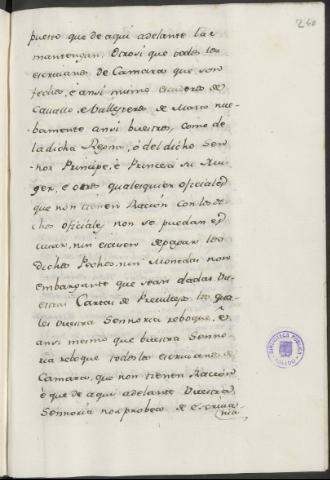 260
puesto que de aqui adelante las
mantengan. Otrosi que todos los
escrivanos de Camara que son
fechos, è ansi mismo escuderos de
Cavallo, è ballesteros de Maza nue-
bamente ansi buestros, como de
la dicha Reyna, ò del dicho Sen-
nor Principe, è Princesa su Mu-
ger, è otros qualesquier oficiales
que non tienen Ración con los di-
chos oficiales non se puedan es
cusar, nin escusen depagar los
dichos Pechos, nin Monedas non
embargante que sean dadas bu-
estras Cartas de Previllejos las qua-
les buestra Sennoria reboque, è
ansi mismo que buestra Senno-
ria reboque todos los escrivanos de
Camara, que non tienen Ración
è que de aqui adelante Vuestra
Sennoria non probea de escriva
nia
BIBLIOTECA PUBLICA
TOLEDO